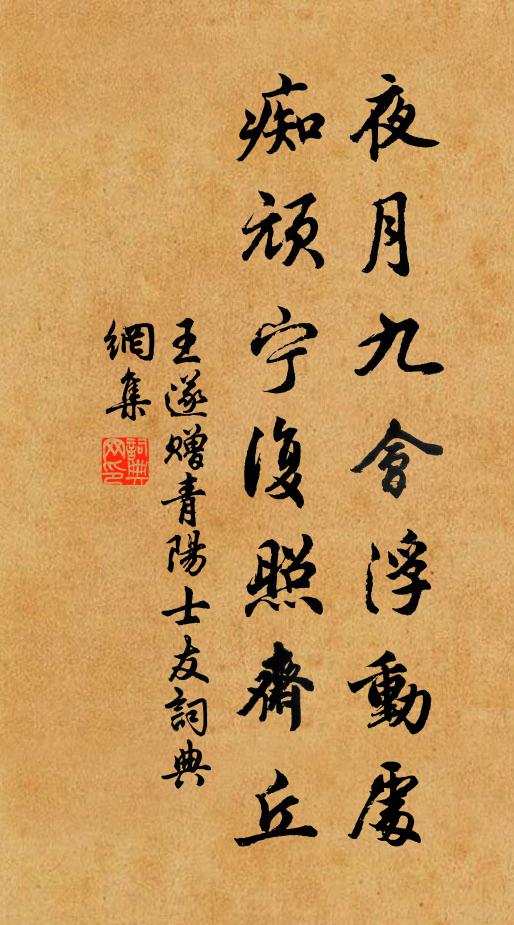 夜月九會浮動處
痴頑宁復照齋丘
王遂贈青陽士友詞典
網集
詞典
網印